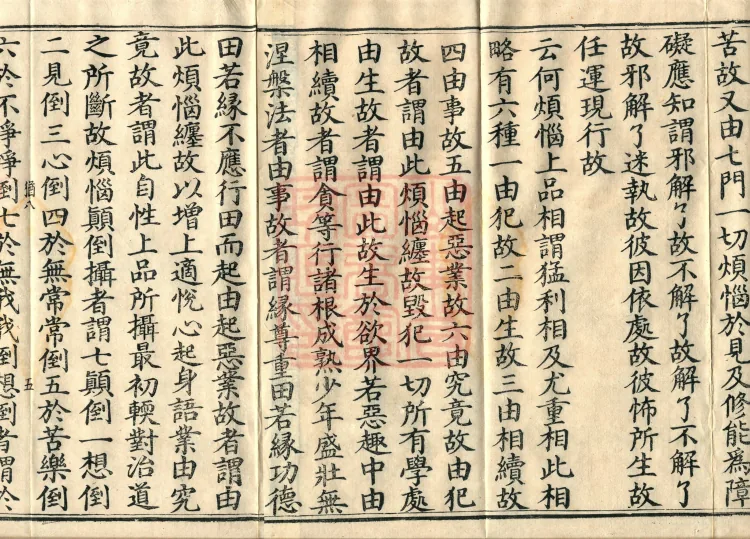 苦故又由七門一切煩惱於見及修能為障
礙應知謂邪解了故不解了故解了不解了
故邪解了迷執故彼因依處故彼怖所生故
任運現行故
云何煩惱上品相謂猛利相及尤重相此相
略有六種一由犯故二由生故三由相續故
四由事故五由起惡業故六由究竟故由犯
故者謂由此煩惱纏故毀犯一切所有學處
由生故者謂由此故生於欲界若惡趣中由
相續故者謂貪等行諸根成熟少年盛壯無
涅槃法者由事故者謂緣尊重田若緣功德
田若緣不應行田而起由起惡業故者謂由
此煩惱纏故以增上適悅心起身語業由究
竟故者謂此自性上品所攝最初輭對治道
之所斷故煩惱顛倒攝者謂七顛倒一想倒
二見倒三心倒四於無常常倒五於苦樂倒
五
六於不淨淨倒七於無我我倒想倒者謂於